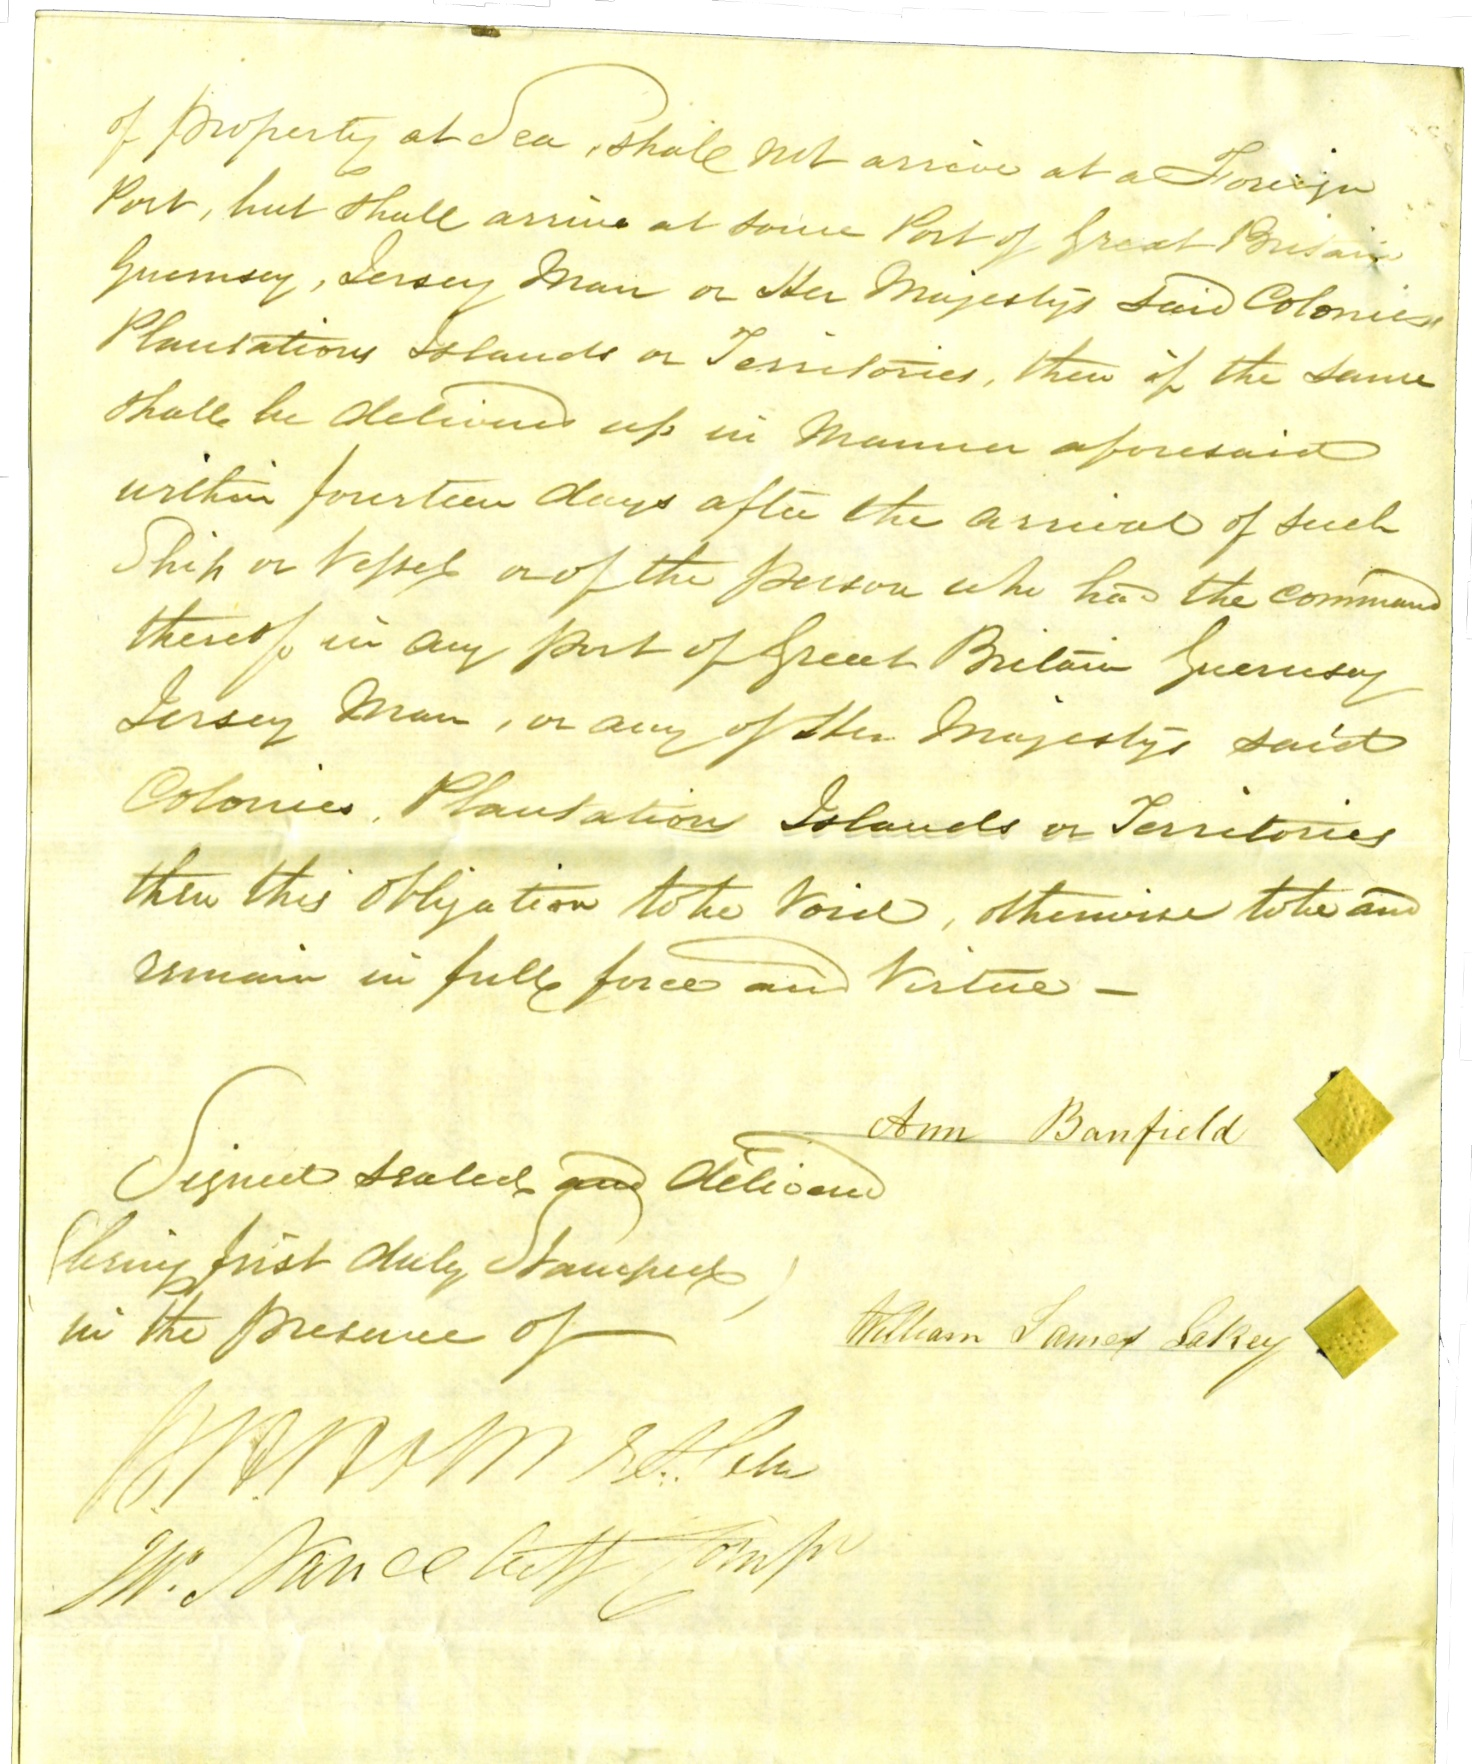 of property at Sea, shall not arrive at a Foreign
Port, but shall arrive at some Port of Great Britain
Guernsey, Jersey Man or Her Majestys said Colonies
Plantations Islands or Territories, then if the same
shall be delivered up in Manner aforesaid
within fourteen days after the arrival of such
Ship or Vessel or of the person who had the command
thereof, in any port of Great Britain Guernsey
Jersey Man, or any of Her Majestys said
Colonies, Plantations Islands or Territories
then this obligation to be Void, otherwise to be and
remain in full force and Virtue —
Ann Banfield
Signed sealed and delivered
(being first duly Stamped)
in the presence of
William James Lakey
Compr